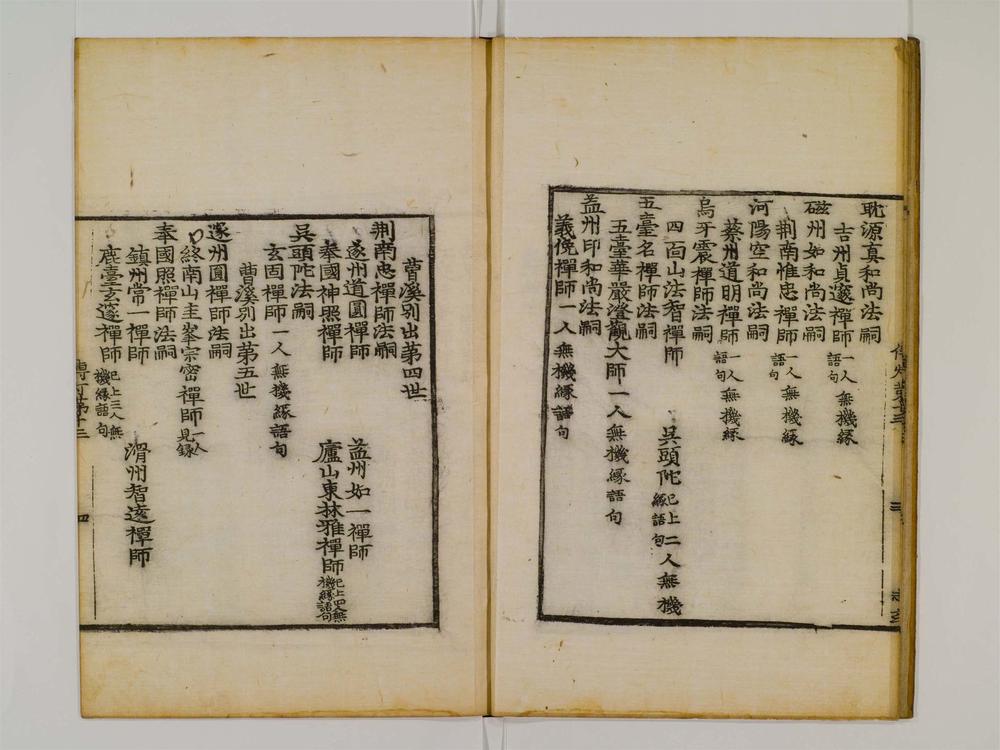 耽源真和尚法嗣
吉州貞邃禪師一人無機緣語句
磁州如和尚法嗣
荆南惟忠禪師一人無機緣語句
河陽空和尚法嗣
蔡州道明禪師一人無機緣語句
烏牙震禪師法嗣
四面山法智禪師 吳頭陀已上二人無機緣語句
五臺名禪師法嗣
五臺華嚴澄觀大師一人無機緣語句
益州印和尚法嗣
義俛禪師一人無機緣語句
曹溪別出第四世
荆南忠禪師法嗣
遂州道圓禪師 益州如一禪師
奉國神照禪師 廬山東林雅禪師已上四人無機緣語句
吳頭陀法嗣
玄固禪師一人無機緣語句
曹溪別出第五世
遂州圓禪師法嗣
終南山圭峯宗密禪師一人見錄
奉國照禪師法嗣
鎮州常一禪師 滑州智遠禪師
鹿臺玄邃禪師已上三人無機緣語句
四